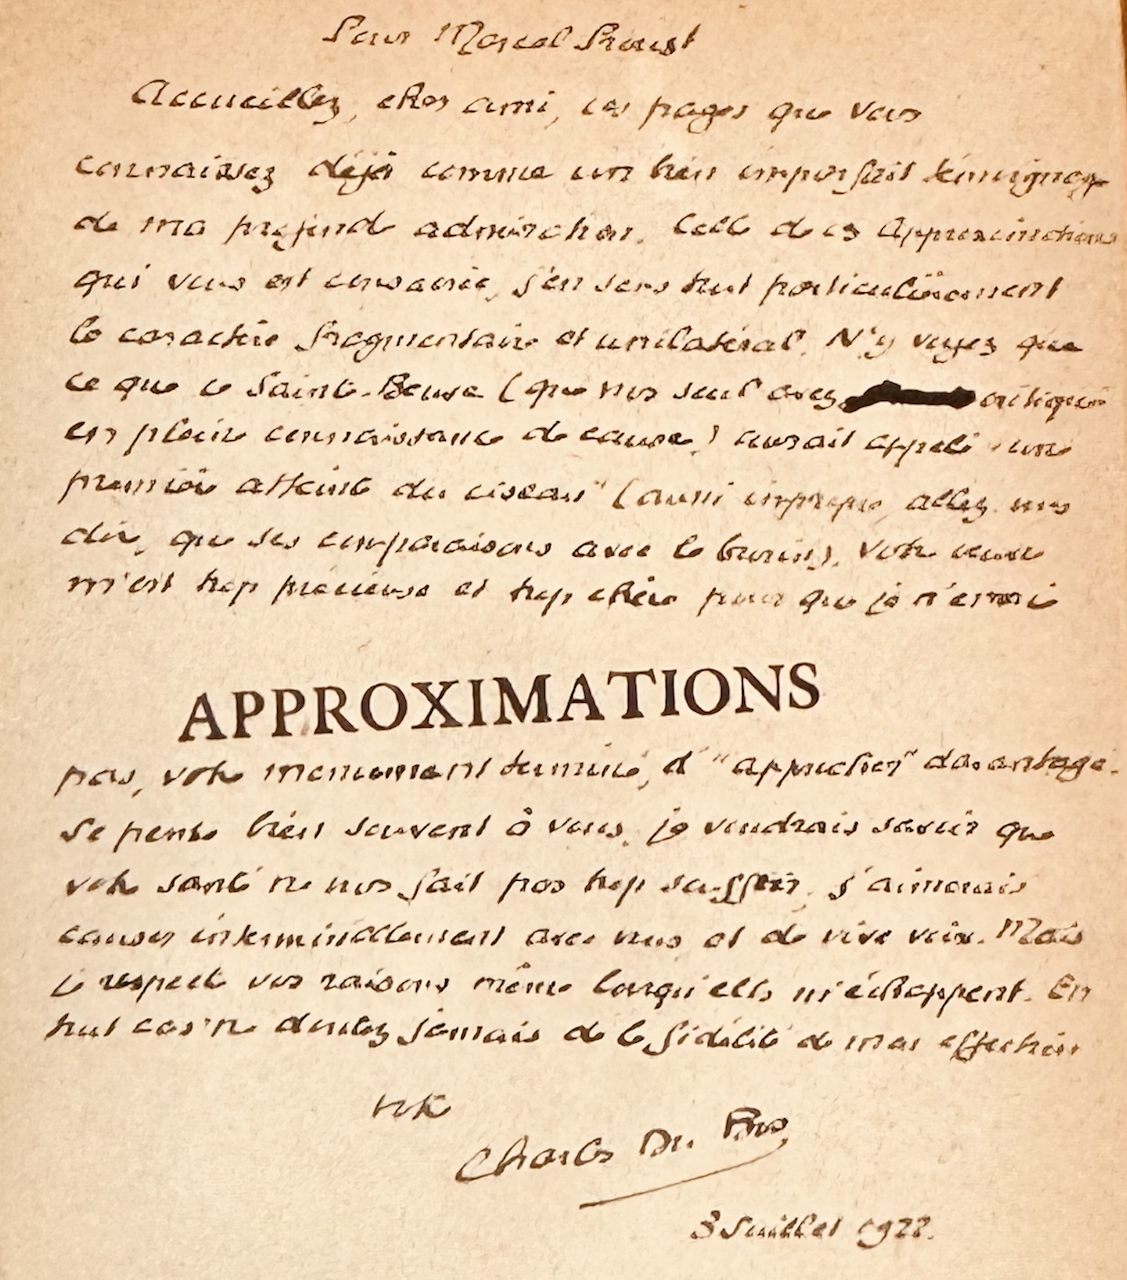 Pour Marcel Proust
Accueillez, cher ami, ces pages que vous
connaissez déjà comme un bien imparfait témoignage
de ma profonde admiration. Celle de ces Approximations
qui vous est consacrée, j'en sens tout particulièrement
le caractère fragmentaire et unilatéral. N'y voyez que
ce que ce Sainte-Beuve (que vous seul avez critiqué
en pleine connaissance de cause) aurait appelé "une
première atteinte du ciseau" (aussi impropre, allez-vous
dire, que ses comparaisons avec le burin). Votre œuvre
m'est trop précieuse et trop chère pour que je n'essaie
APPROXIMATIONS
pas, votre monument terminé, d'"approcher" davantage.
Je pense bien souvent à vous, je voudrais savoir que
votre santé ne vous fait pas trop souffrir, j'aimerais
causer interminablement avec vous et de vive voix. Mais
je respecte vos raisons même lorsqu'elles m'échappent. En
tout cas ne doutez jamais de la fidélité de mon affection
votre
Charles Du Bos
3 Juillet 1922.